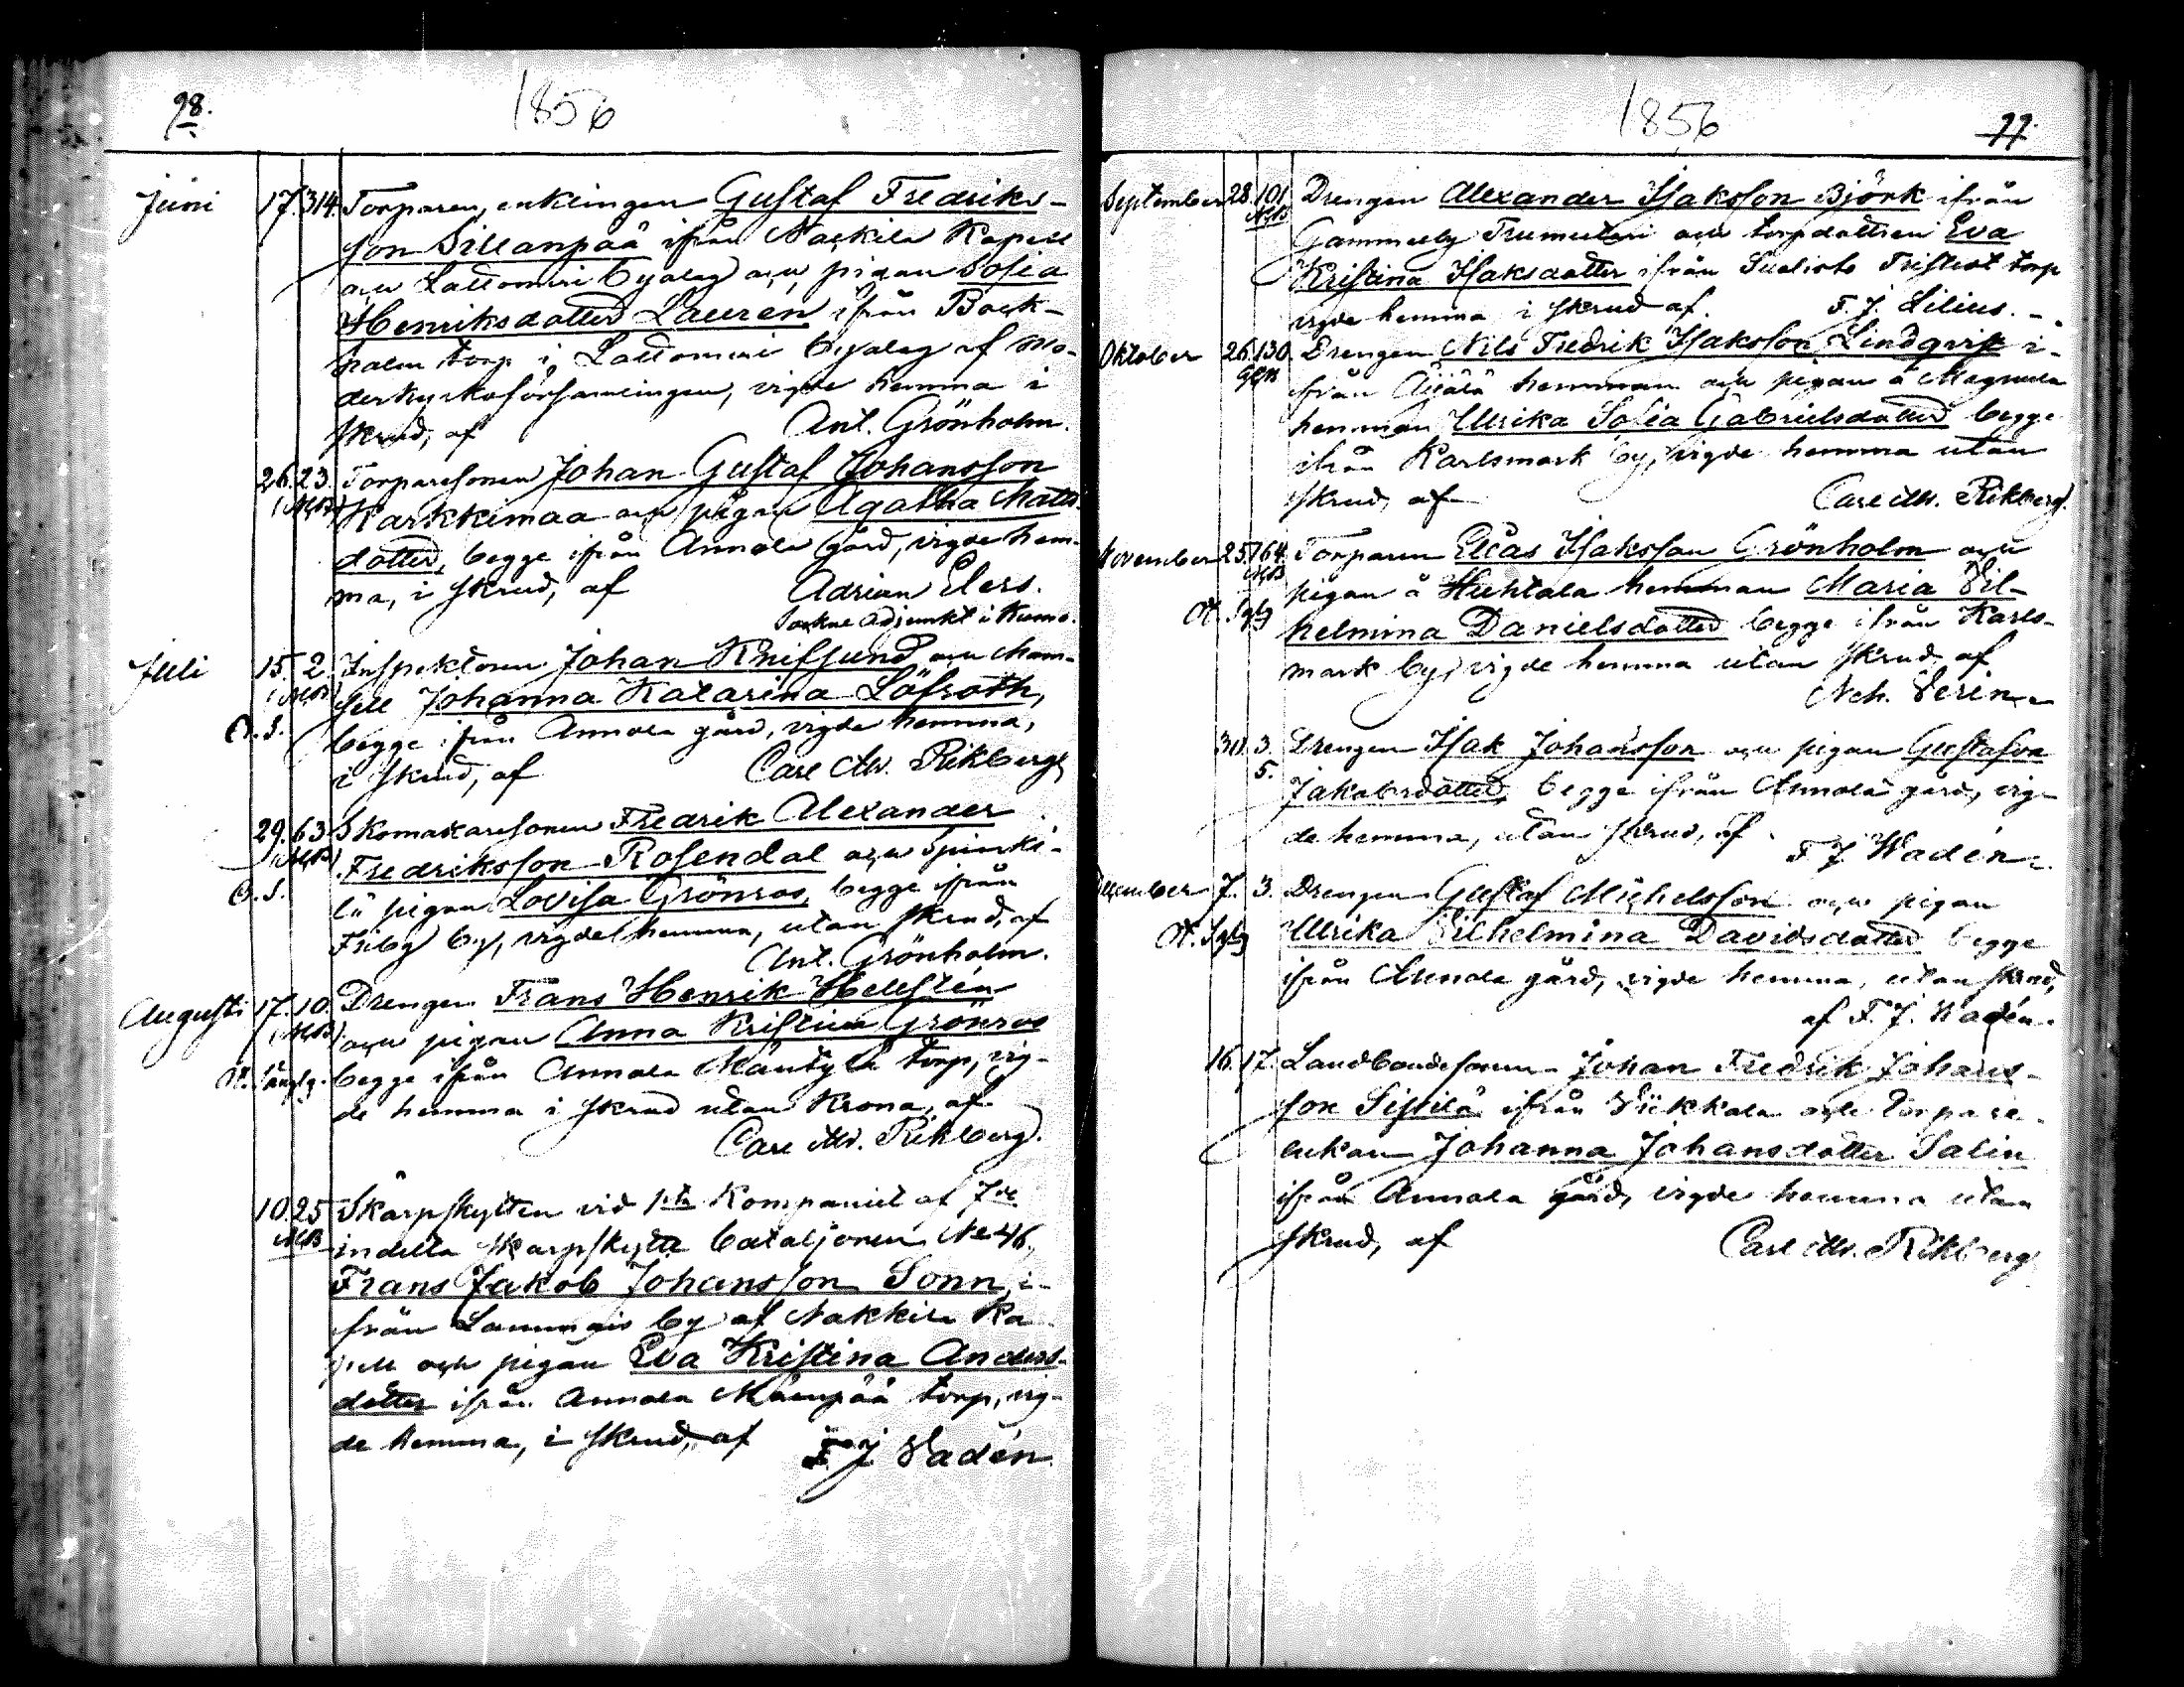 98.
1856
Juni 17. 314. Torparen, enklingen Gustaf Fredriks-
son Sillanpää ifrån Nackila Kapell
och Lattomeri byalag och pigan Sofia
Henriksdotter Laurén ifrån Back-
holm torp i Lattomeri byalag af Mo-
derkyrkoförsamlingen, vigde hemma i
skrud, af Ant. Grönholm.
26. 23. Torparesonen Johan Gustaf Johansson
Karkkimaa och pigan Agatha Matts-
dotter, begge ifrån Annola gård, vigde hem-
ma, i skrud, af Adrian Elers.
Sockne adjunkt i Kumo.
Juli 15. 2. Inspektoren Johan Knifsund och Mam-
sell Johanna Katarina Löfroth,
C. S. begge ifrån Annola gård, vigde hemma,
i skrud, af Carl M. Rikberg
29. 63. Skomakaresonen Fredrik Alexander
Fredriksson Rosendal och
pigan Lovisa Grönroos, begge ifrån
Friby by, vigde hemma, utan skrud, af
Ant. Grönholm.
Augusti 17. 10. Drengen Frans Henrik Hellstén
och pigan Anna Kristina Grönroos
begge ifrån Annola Mäntylä torp, vig-
de hemma i skrud utan Krona, af
Carl M. Rikberg.
10. 25 Skarpskytten vid 1sta Kompaniet af 7de
indelta skarpskytte bataljonen No 46,
Frans Jakob Johansson Sonn, i-
från Lammais by af Nakkila Ka-
pell och pigan Eva Kristina Anders-
dotter ifrån Annola Mäenpää torp, vig-
de hemma, i skrud, af F J Vadén.
1856
77.
September 28. 101 Drengen Alexander Isaksson Björk ifrån
Gammelby och torpdottren Eva
Kristina Isaksdotter ifrån torp
vigde hemma i skrud af. F. J. Lilius.
Oktober 26. 130. Drengen Nils Fredrik Isaksson Lindqvist i-
från Äijälä hemman och pigan å Magnula
hemman Ulrika Sofia Gabrielsdotter begge
ifrån Karlsmark by, vigde hemma utan
skrud, af Carl M. Rikberg.
November 25. 164. Torparen Elias Isaksson Grönholm och
pigan å Huhtala hemman Maria Vil-
helmina Danielsdotter begge ifrån Karls-
mark by, vigde hemma utan skrud af
Nch. Verin.
30. 3. Drengen Isak Johansson och pigan Gustafva
5. Jakobsdotter, begge ifrån Annola gård, vig-
de hemma, utan skrud, af
F J Wadén.
December 7. 3. Drengen Gustaf Michelsson och pigan
Ulrika Vilhelmina Davidsdotter begge
ifrån Annola gård, vigde hemma, utan skrud,
af F. J. Wadén.
16. 17. Landbondesonen Johan Fredrik Johans-
son Sissilä ifrån Viikkala och Torpare-
enkan Johanna Johansdotter Salin
ifrån Annola gård, vigde hemma utan
skrud, af Carl M. Rikberg